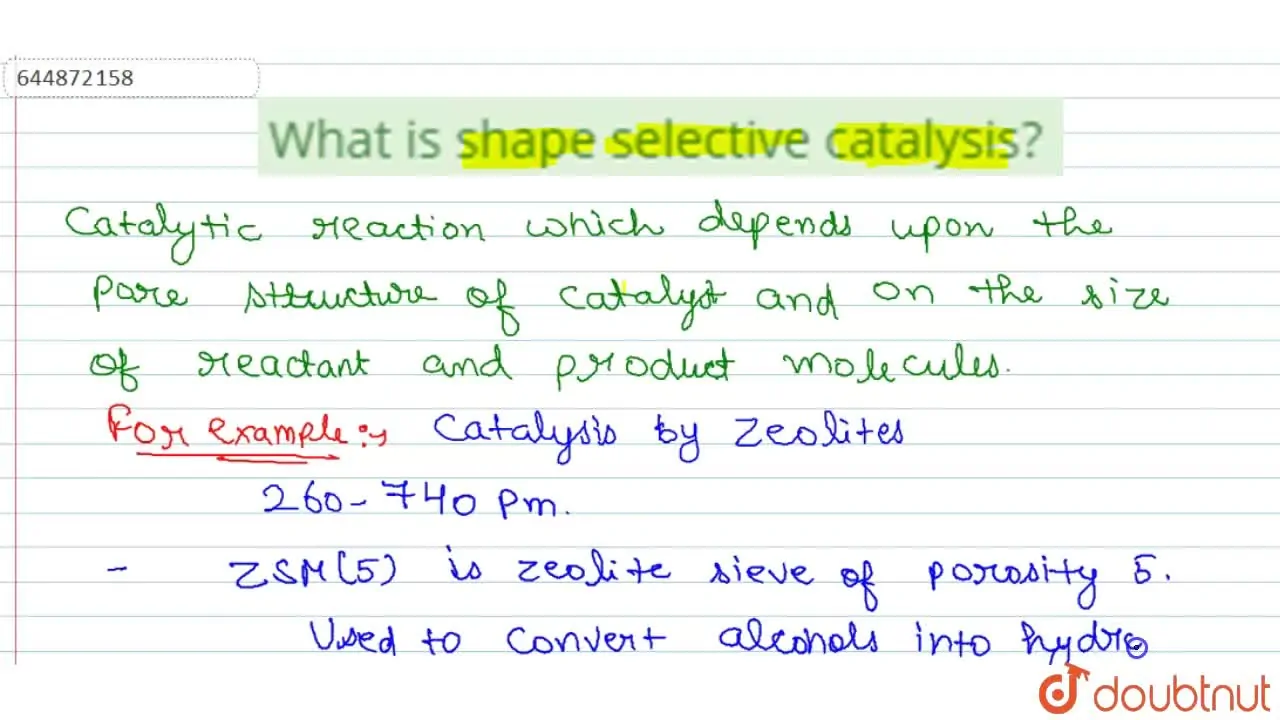 644872158
What is shape selective catalysis?
Catalytic reaction which depends upon the
pore structure of catalyst and on the size
of reactant and product molecules.
For example:→ Catalysis by Zeolites
260-740 pm.
- ZSM(5) is zeolite sieve of porosity 5.
Used to convert alcohols into hydro
doubtnut